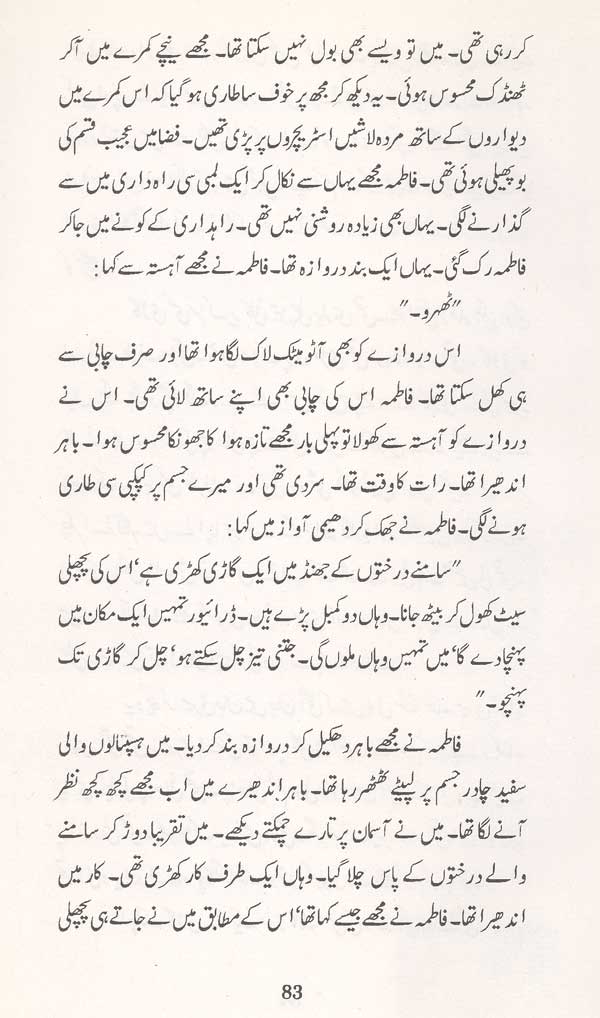 کر رہی تھی۔ میں تو ویسے بھی بول نہیں سکتا تھا۔ مجھے نیچے کمرے میں آکر
ٹھنڈک محسوس ہوئی۔ یہ دیکھ کر مجھ پر خوف سا طاری ہو گیا کہ اس کمرے میں
دیواروں کے ساتھ مردہ لاشیں اسٹریچروں پر پڑی تھیں۔ فضا میں عجیب قسم کی
بو پھیلی ہوئی تھی۔ فاطمہ مجھے یہاں سے نکال کر ایک لمبی سی راہ داری میں سے
گذارنے لگی۔ یہاں بھی زیادہ روشنی نہیں تھی۔ راہداری کے کونے میں جا کر
فاطمہ رک گئی۔ یہاں ایک بند دروازہ تھا۔ فاطمہ نے مجھے آہستہ سے کہا:
"ٹھہرو۔"
اس دروازے کو بھی آٹو میٹک لاک لگا ہوا تھا اور صرف چابی سے
ہی کھل سکتا تھا۔ فاطمہ اس کی چابی بھی اپنے ساتھ لائی تھی۔ اس نے
دروازے کو آہستہ سے کھولا تو پہلی بار مجھے تازہ ہوا کا جھونکا محسوس ہوا۔ باہر
اندھیرا تھا۔ رات کا وقت تھا۔ سردی تھی اور میرے جسم پر کپکپی سی طاری
ہونے لگی۔ فاطمہ نے جھک کر دھیمی آواز میں کہا:
"سامنے درختوں کے جھنڈ میں ایک گاڑی کھڑی ہے‘ اس کی پچھلی
سیٹ کھول کر بیٹھ جانا۔ وہاں دو کمبل پڑے ہیں۔ ڈرائیور تمہیں ایک مکان میں
پہنچا دے گا‘ میں تمہیں وہاں ملوں گی۔ جتنی تیز چل سکتے ہو‘ چل کر گاڑی تک
پہنچو۔"
فاطمہ نے مجھے باہر دھکیل کر دروازہ بند کر دیا۔ میں ہسپتالوں والی
سفید چادر جسم پر لپیٹے ٹھٹھر رہا تھا۔ باہر اندھیرے میں اب مجھے کچھ کچھ نظر
آنے لگا تھا۔ میں نے آسمان پر تارے چمکتے دیکھے۔ میں تقریبا دوڑ کر سامنے
والے درختوں کے پاس چلا گیا۔ وہاں ایک طرف کار کھڑی تھی۔ کار میں
اندھیرا تھا۔ فاطمہ نے مجھے جیسے کہا تھا‘ اس کے مطابق میں نے جاتے ہی پچھلی
83